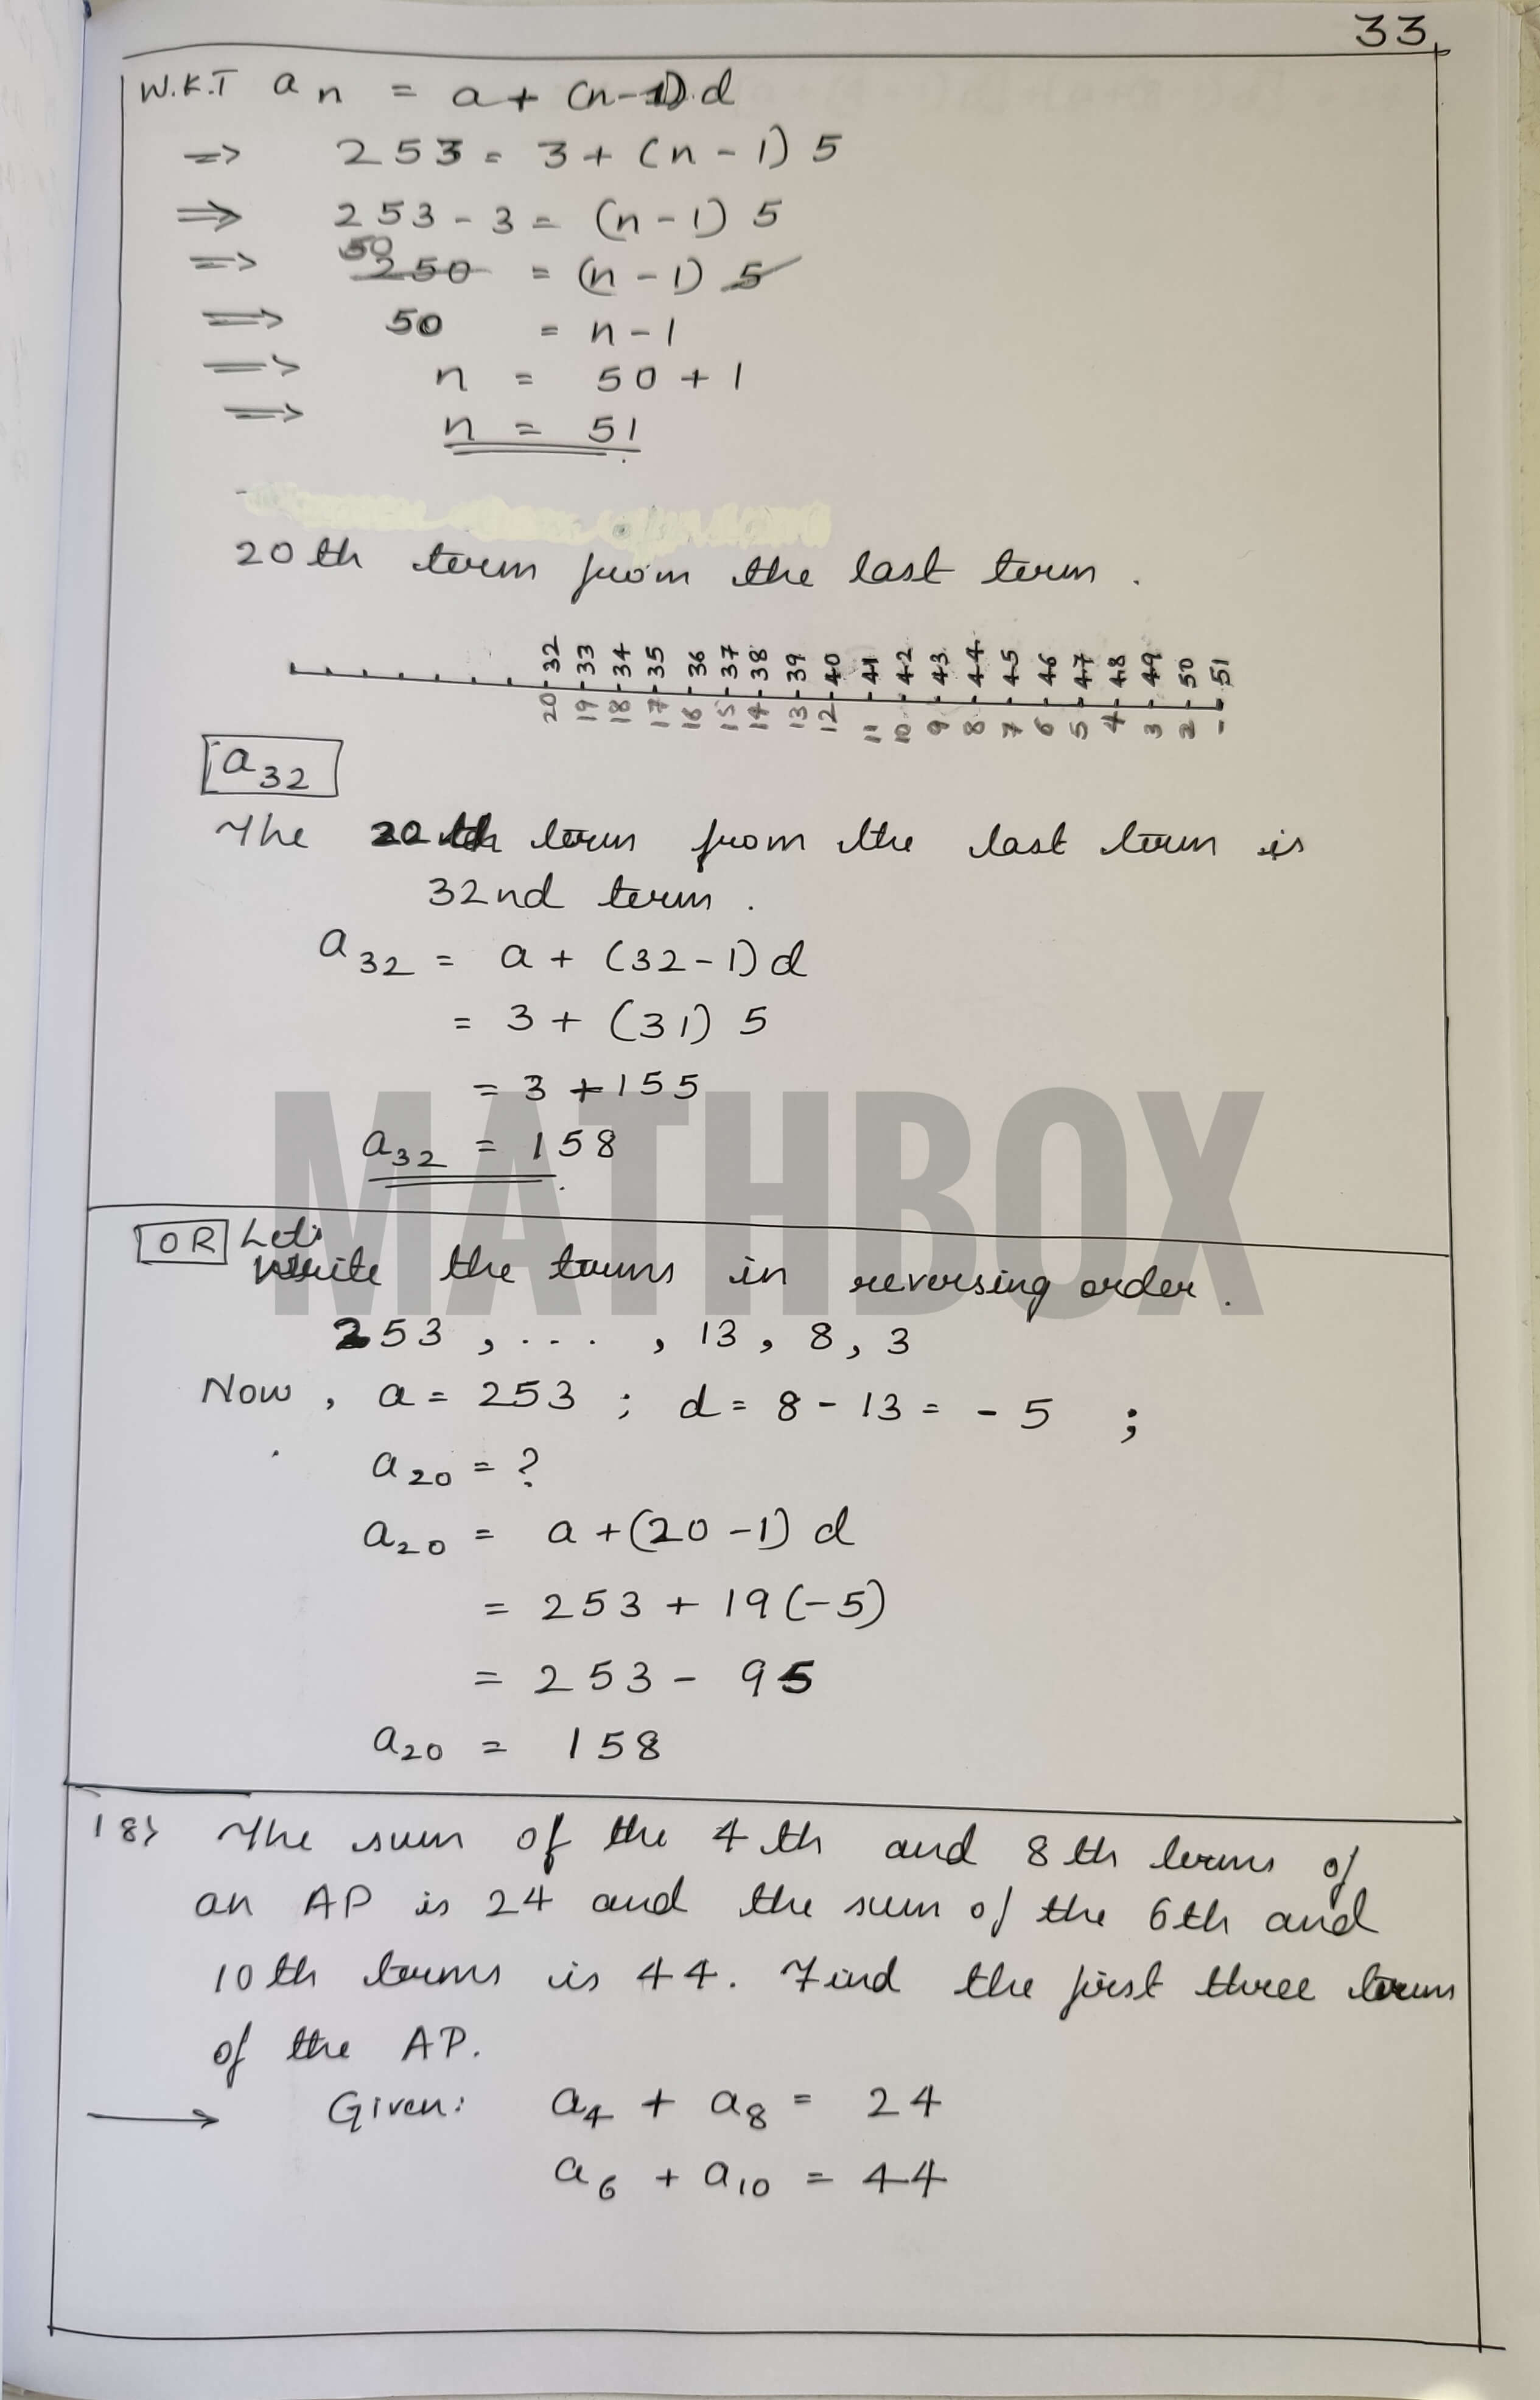 33
W.K.T an = a + (n-1)d
=> 253 = 3 + (n-1) 5
=> 253 - 3 = (n-1) 5
50
=> 250 = (n-1) 5
=> 50 = n-1
=> n = 50 + 1
=> n = 51
20th term from the last term .
32 33 34 35 36 37 38 39 40 41 42 43 44 45 46 47 48 49 50 51
20 19 18 17 16 15 14 13 12 11 10 9 8 7 6 5 4 3 2 1
a32
The 20th term from the last term is
32nd term .
a32 = a + (32-1)d
= 3 + (31) 5
= 3 + 155
a32 = 158
MATHBOX
OR Let's
write the terms in reversing order .
253 , ... , 13 , 8 , 3
Now , a = 253 ; d = 8 - 13 = - 5 ;
a20 = ?
a20 = a + (20-1) d
= 253 + 19(-5)
= 253 - 95
a20 = 158
18) The sum of the 4th and 8th terms of
an AP is 24 and the sum of the 6th and
10th terms is 44. Find the first three terms
of the AP.
Given: a4 + a8 = 24
a6 + a10 = 44